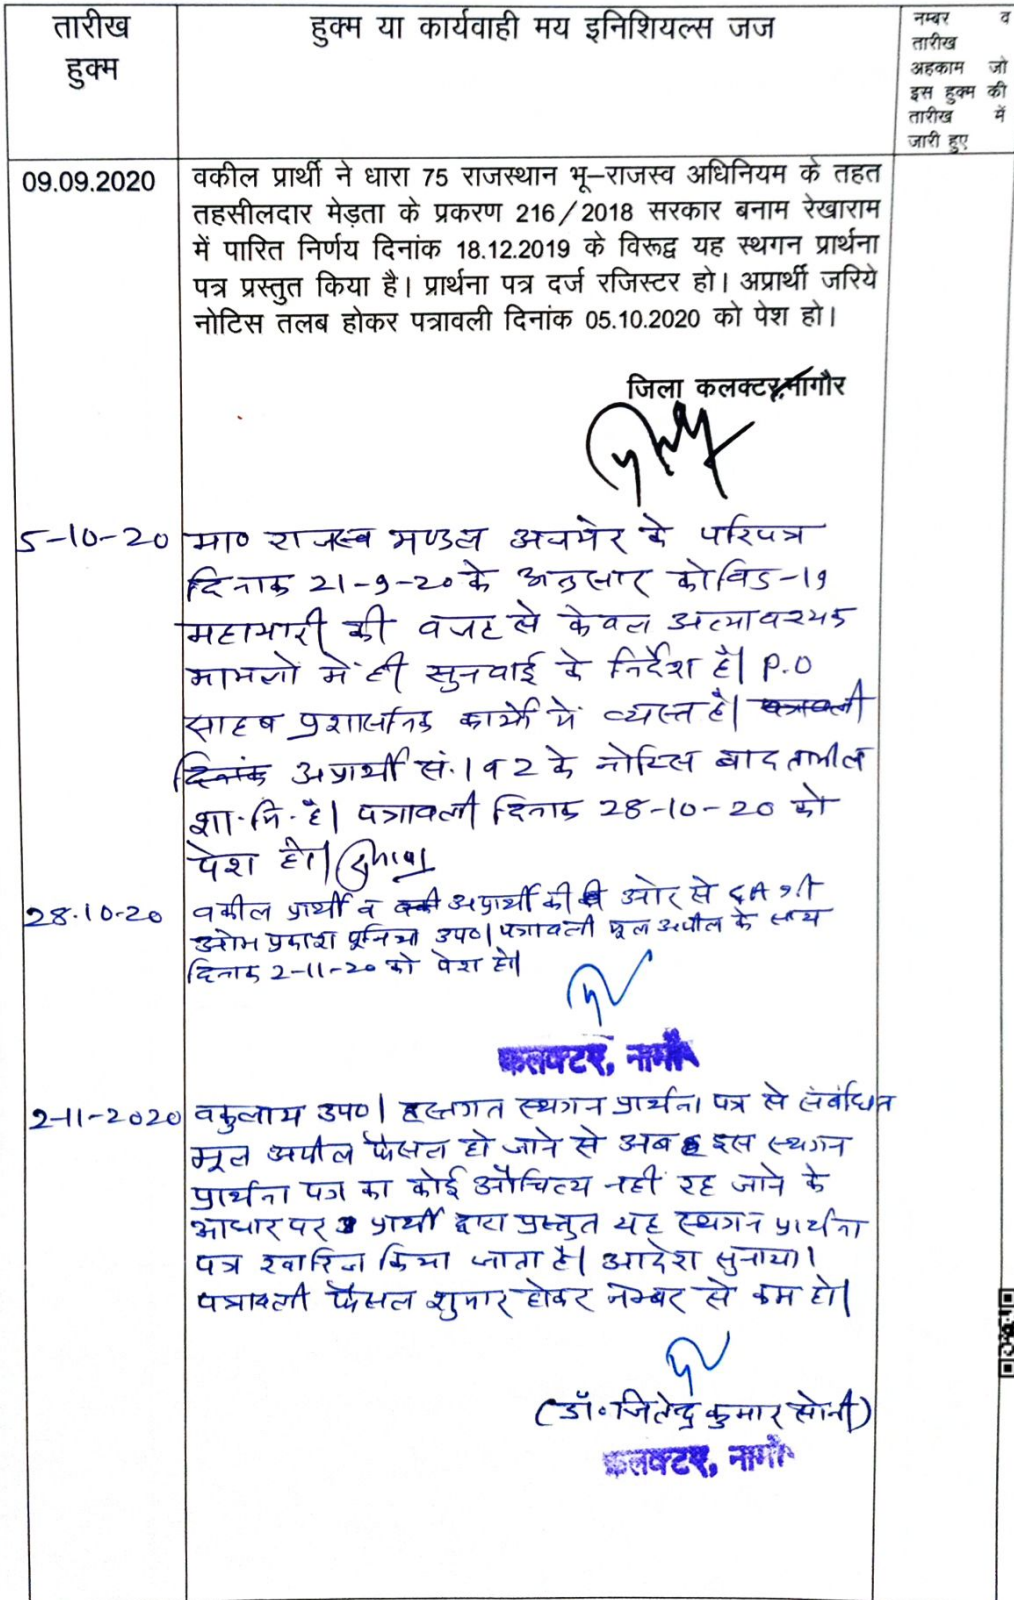 तारीख
हुक्म
हुक्म या कार्यवाही मय इनिशियल्स जज
नम्बर व
तारीख
अहकाम जो
इस हुक्म की
तारीख में
जारी हुए
09.09.2020
वकील प्रार्थी ने धारा 75 राजस्थान भू–राजस्व अधिनियम के तहत
तहसीलदार मेड़ता के प्रकरण 216/2018 सरकार बनाम रेखाराम
में पारित निर्णय दिनांक 18.12.2019 के विरूद्व यह स्थगन प्रार्थना
पत्र प्रस्तुत किया है। प्रार्थना पत्र दर्ज रजिस्टर हो। अप्रार्थी जरिये
नोटिस तलब होकर पत्रावली दिनांक 05.10.2020 को पेश हो।
जिला कलक्टर,नागौर
5-10-20 मा० राजस्व मण्डल अजमेर के परिपत्र
दिनांक 21-9-20 के अनुसार कोविड-19
महामारी की वजह से केवल अत्यावश्यक
मामलो में ही सुनवाई के निर्देश है। P.O
साहब प्रशासनिक कार्यो में व्यस्त है। पत्रावली
दिनांक अप्रार्थी सं. 1 व 2 के नोटिस बाद तामील
शा.मि. है। पत्रावली दिनांक 28-10-20 को
पेश हो।
28-10-20 वकील प्रार्थी व अप्रार्थी की ओर से GA श्री
ओम प्रकाश पूनिया उप०। पत्रावली मूल अपील के साथ
दिनांक 2-11-20 को पेश हो।
कलक्टर, नागौर
2-11-2020 वकुलाय उप०। हस्तगत स्थगन प्रार्थना पत्र से संबंधित
मूल अपील फैसला हो जाने से अब इस स्थगन
प्रार्थना पत्र का कोई औचित्य नहीं रह जाने के
आधार पर प्रार्थी द्वारा प्रस्तुत यह स्थगन प्रार्थना
पत्र खारिज किया जाता है। आदेश सुनाया।
पत्रावली फैसल शुमार होकर नम्बर से कम हो।
(डॉ. जितेन्द्र कुमार सोनी)
कलक्टर, नागौर